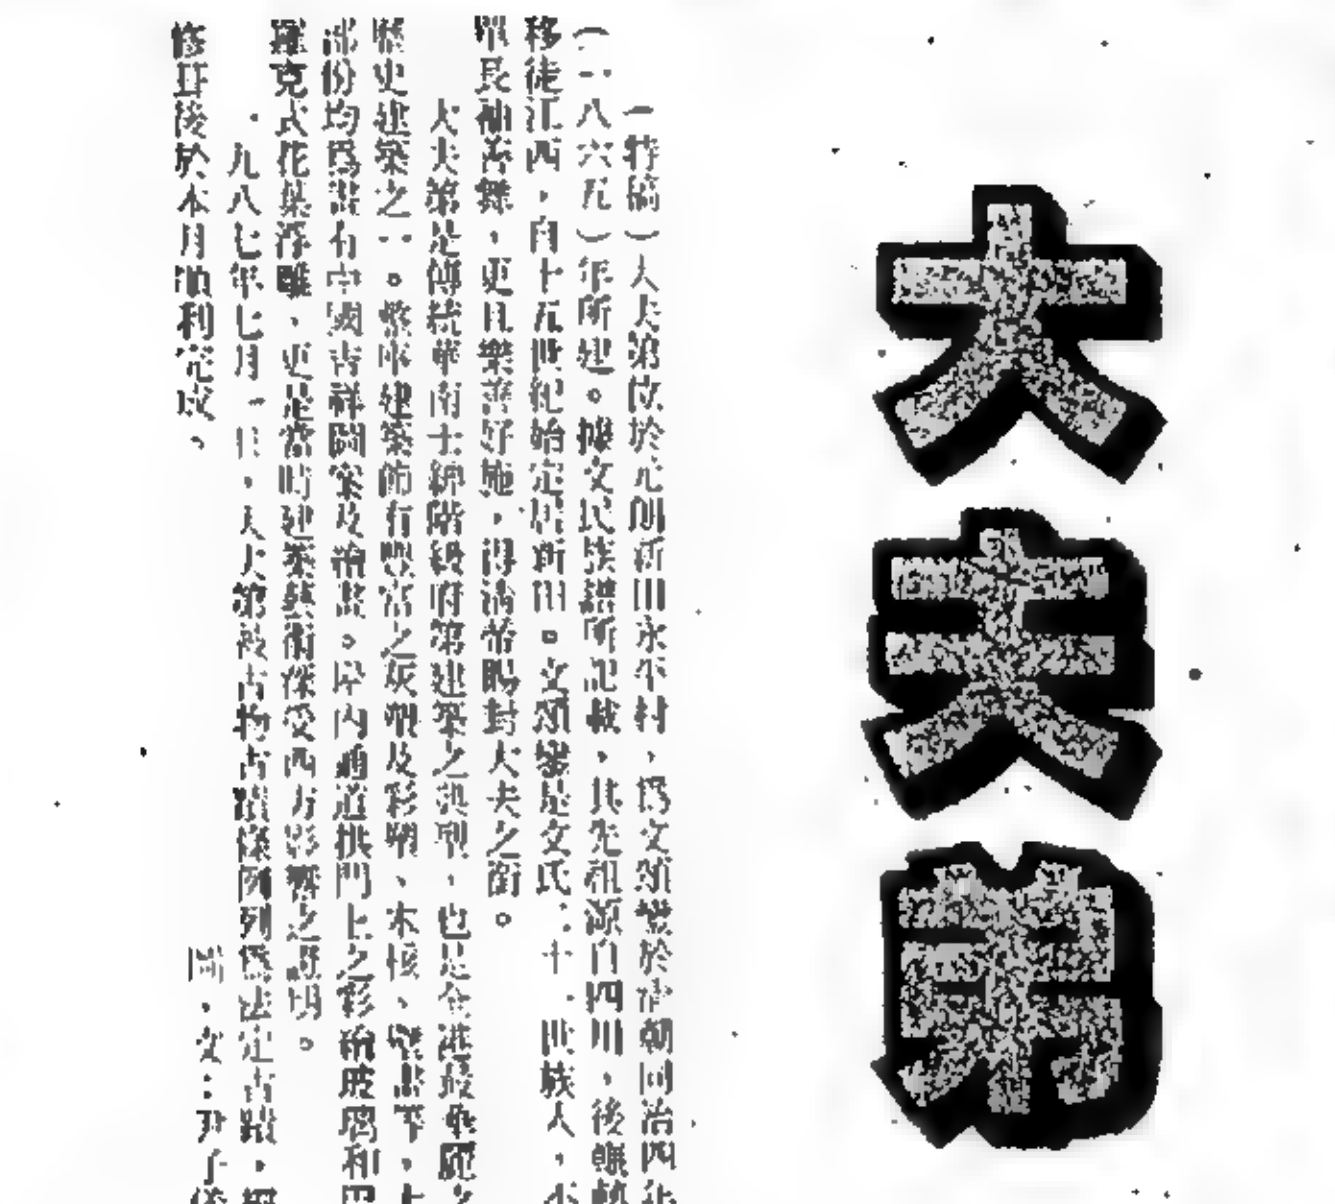 大夫第
（特稿）大夫第位於元朗新田永平村，爲文頌鑾於清朝同治四年
（一八六五）年所建。據文氏族譜所記載，其先祖源自四川，後輾轉
移徙江西，自十五世紀始定居新田。文頌鑾是文氏二十一世族人，不
單長袖善舞，更且樂善好施，得清帝賜封大夫之銜。
大夫第是傳統華南士紳階級府第建築之典型，也是全港最華麗之
歷史建築之一。整座建築飾有豐富之灰塑及彩塑、木棂、壁畫等，大
部份均爲畫有中國吉祥圖案及繪畫。屋內通道拱門上之彩繪玻璃和巴
羅克式花葉浮雕，更是當時建築藝術深受西方影響之證明。
一九八七年七月一日，大夫第被古物古蹟條例列爲法定古蹟，經
修葺後於本月順利完成。
圖，文：尹子